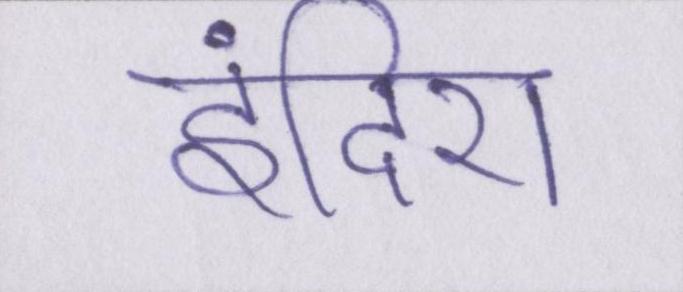 इंदिरा